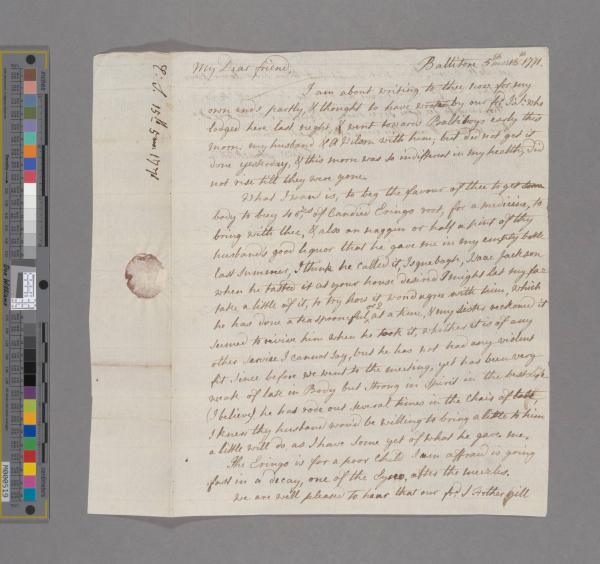 My Dear friend, Ballitore 5th mo 15th 1771.
I am about writing to thee now for my
own ends partly, & thought to have wrote by our fd Js: who
lodged here last night, & went toward Baltiboys early this
morn: my husband & A Wilson with him, but did not get it
done yesterday, & this morn was so indifferent in my health, did
not rise till they were gone.
What I want is, to beg the favour of thee to get some
body to buy 4 ozs of Candied Eringo root, for a medicine, to
bring with thee, & also an naggin or half a pint of thy
husband's good liquor that he gave me in my empty bottle
last summer, I think he called it Isquebagh, Isaac Jackson
when he tasted it at your house desired I might let my
take a little of it, to try how it woud agree with him, which
he has done a teaspoonful or 2 at a time, & my sister reckoned it
seemed to revive him when he took it, whether it is of any
other service I cannot say, but he has not had any violent
fit since before we went to the meeting, yet has been very
weak of late in Body but strong in Spirit in the best
(I believe) he has rode out several times in the Chair of late,
I knew thy husband wou'd be willing to bring a little to him
a little will do, as I have some yet of what he gave me.
The Eringo is for a poor Child I am affraid is going
fast in a decay, one of the after the meezles.
We are well please to hear that our frd J Fothergill
E. S. 15th 5 mo 1771
M000519